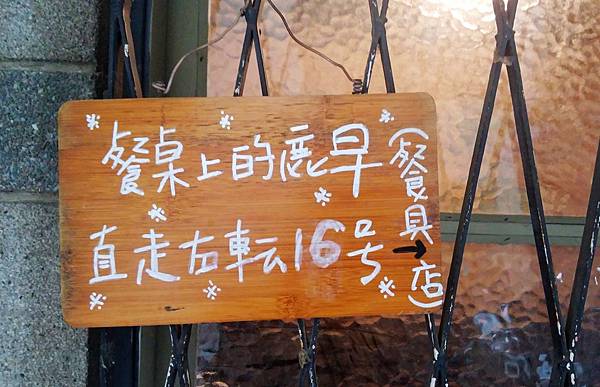 餐桌上的鹿早
直走右転16号
(餐具→店)